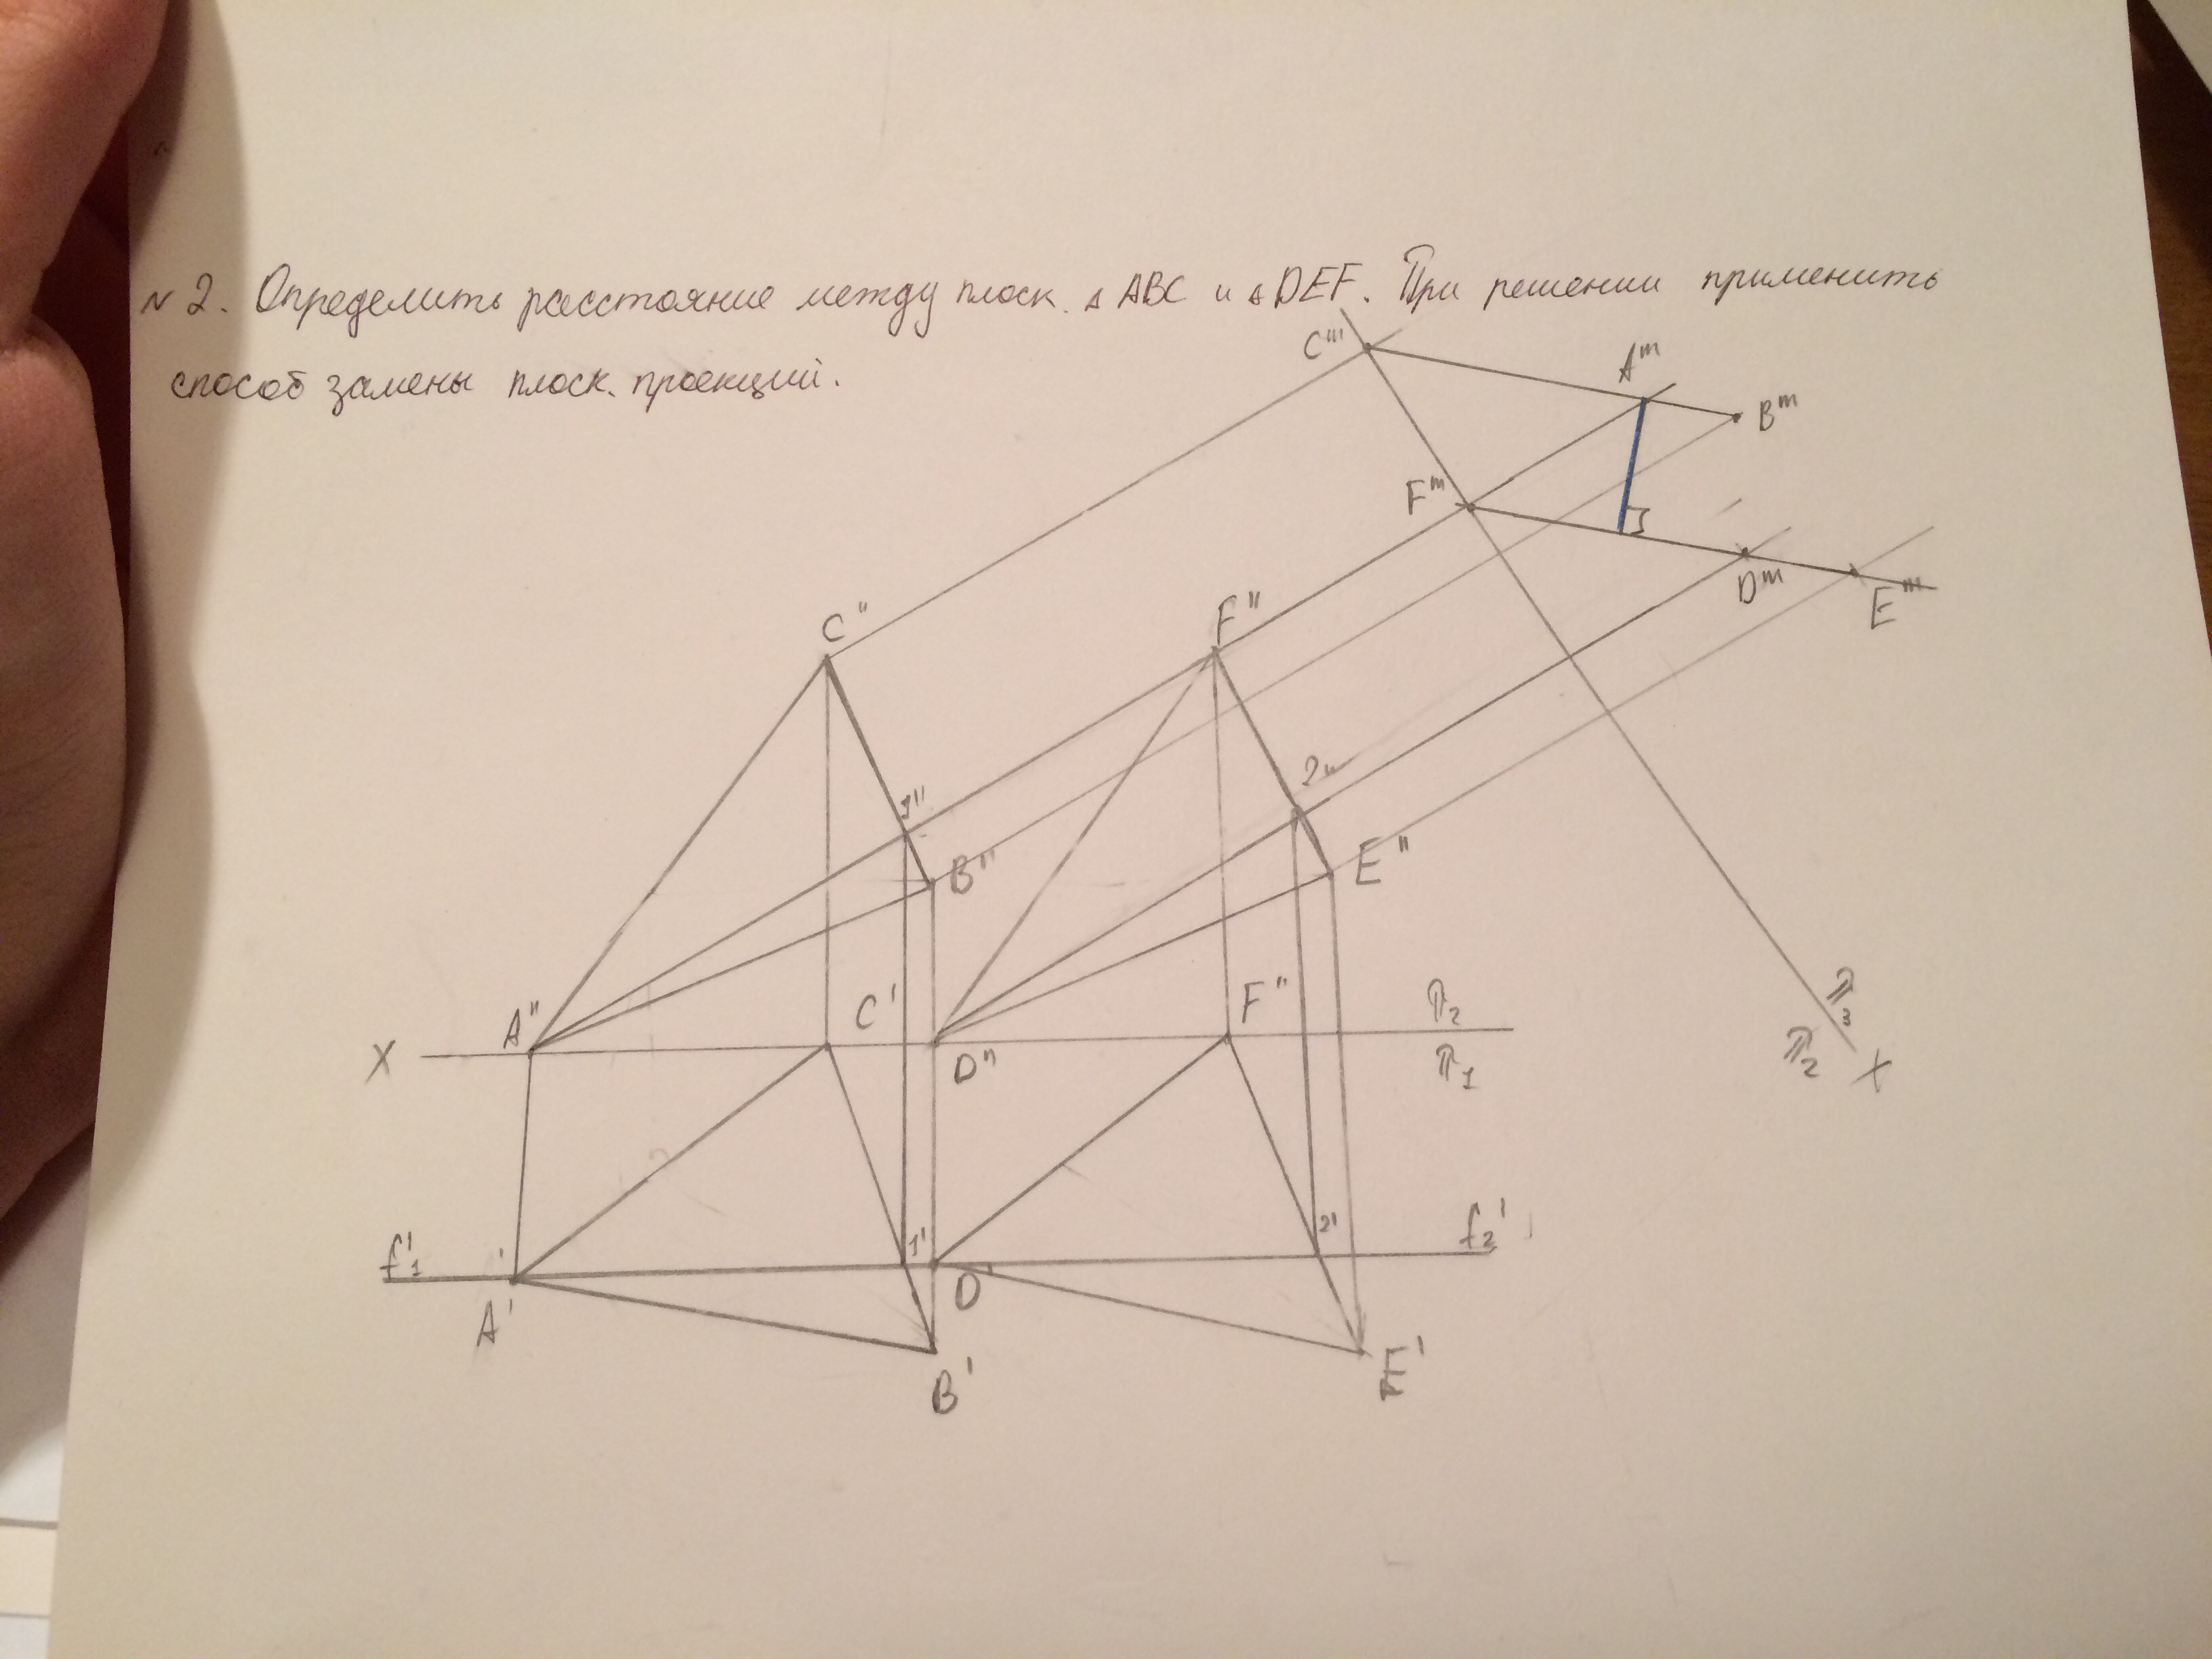 №2. Определить расстояние между плоск. △ABC и △DEF. При решении применить
способ замены плоск. проекций.
C'''
A'''
B'''
F'''
D'''
E'''
C"
F"
1"
2"
B"
E"
A"
C'
F"
π2
X
D"
π1
π3
π2
X
f1'
1'
2'
f2'
A'
D'
B'
E'